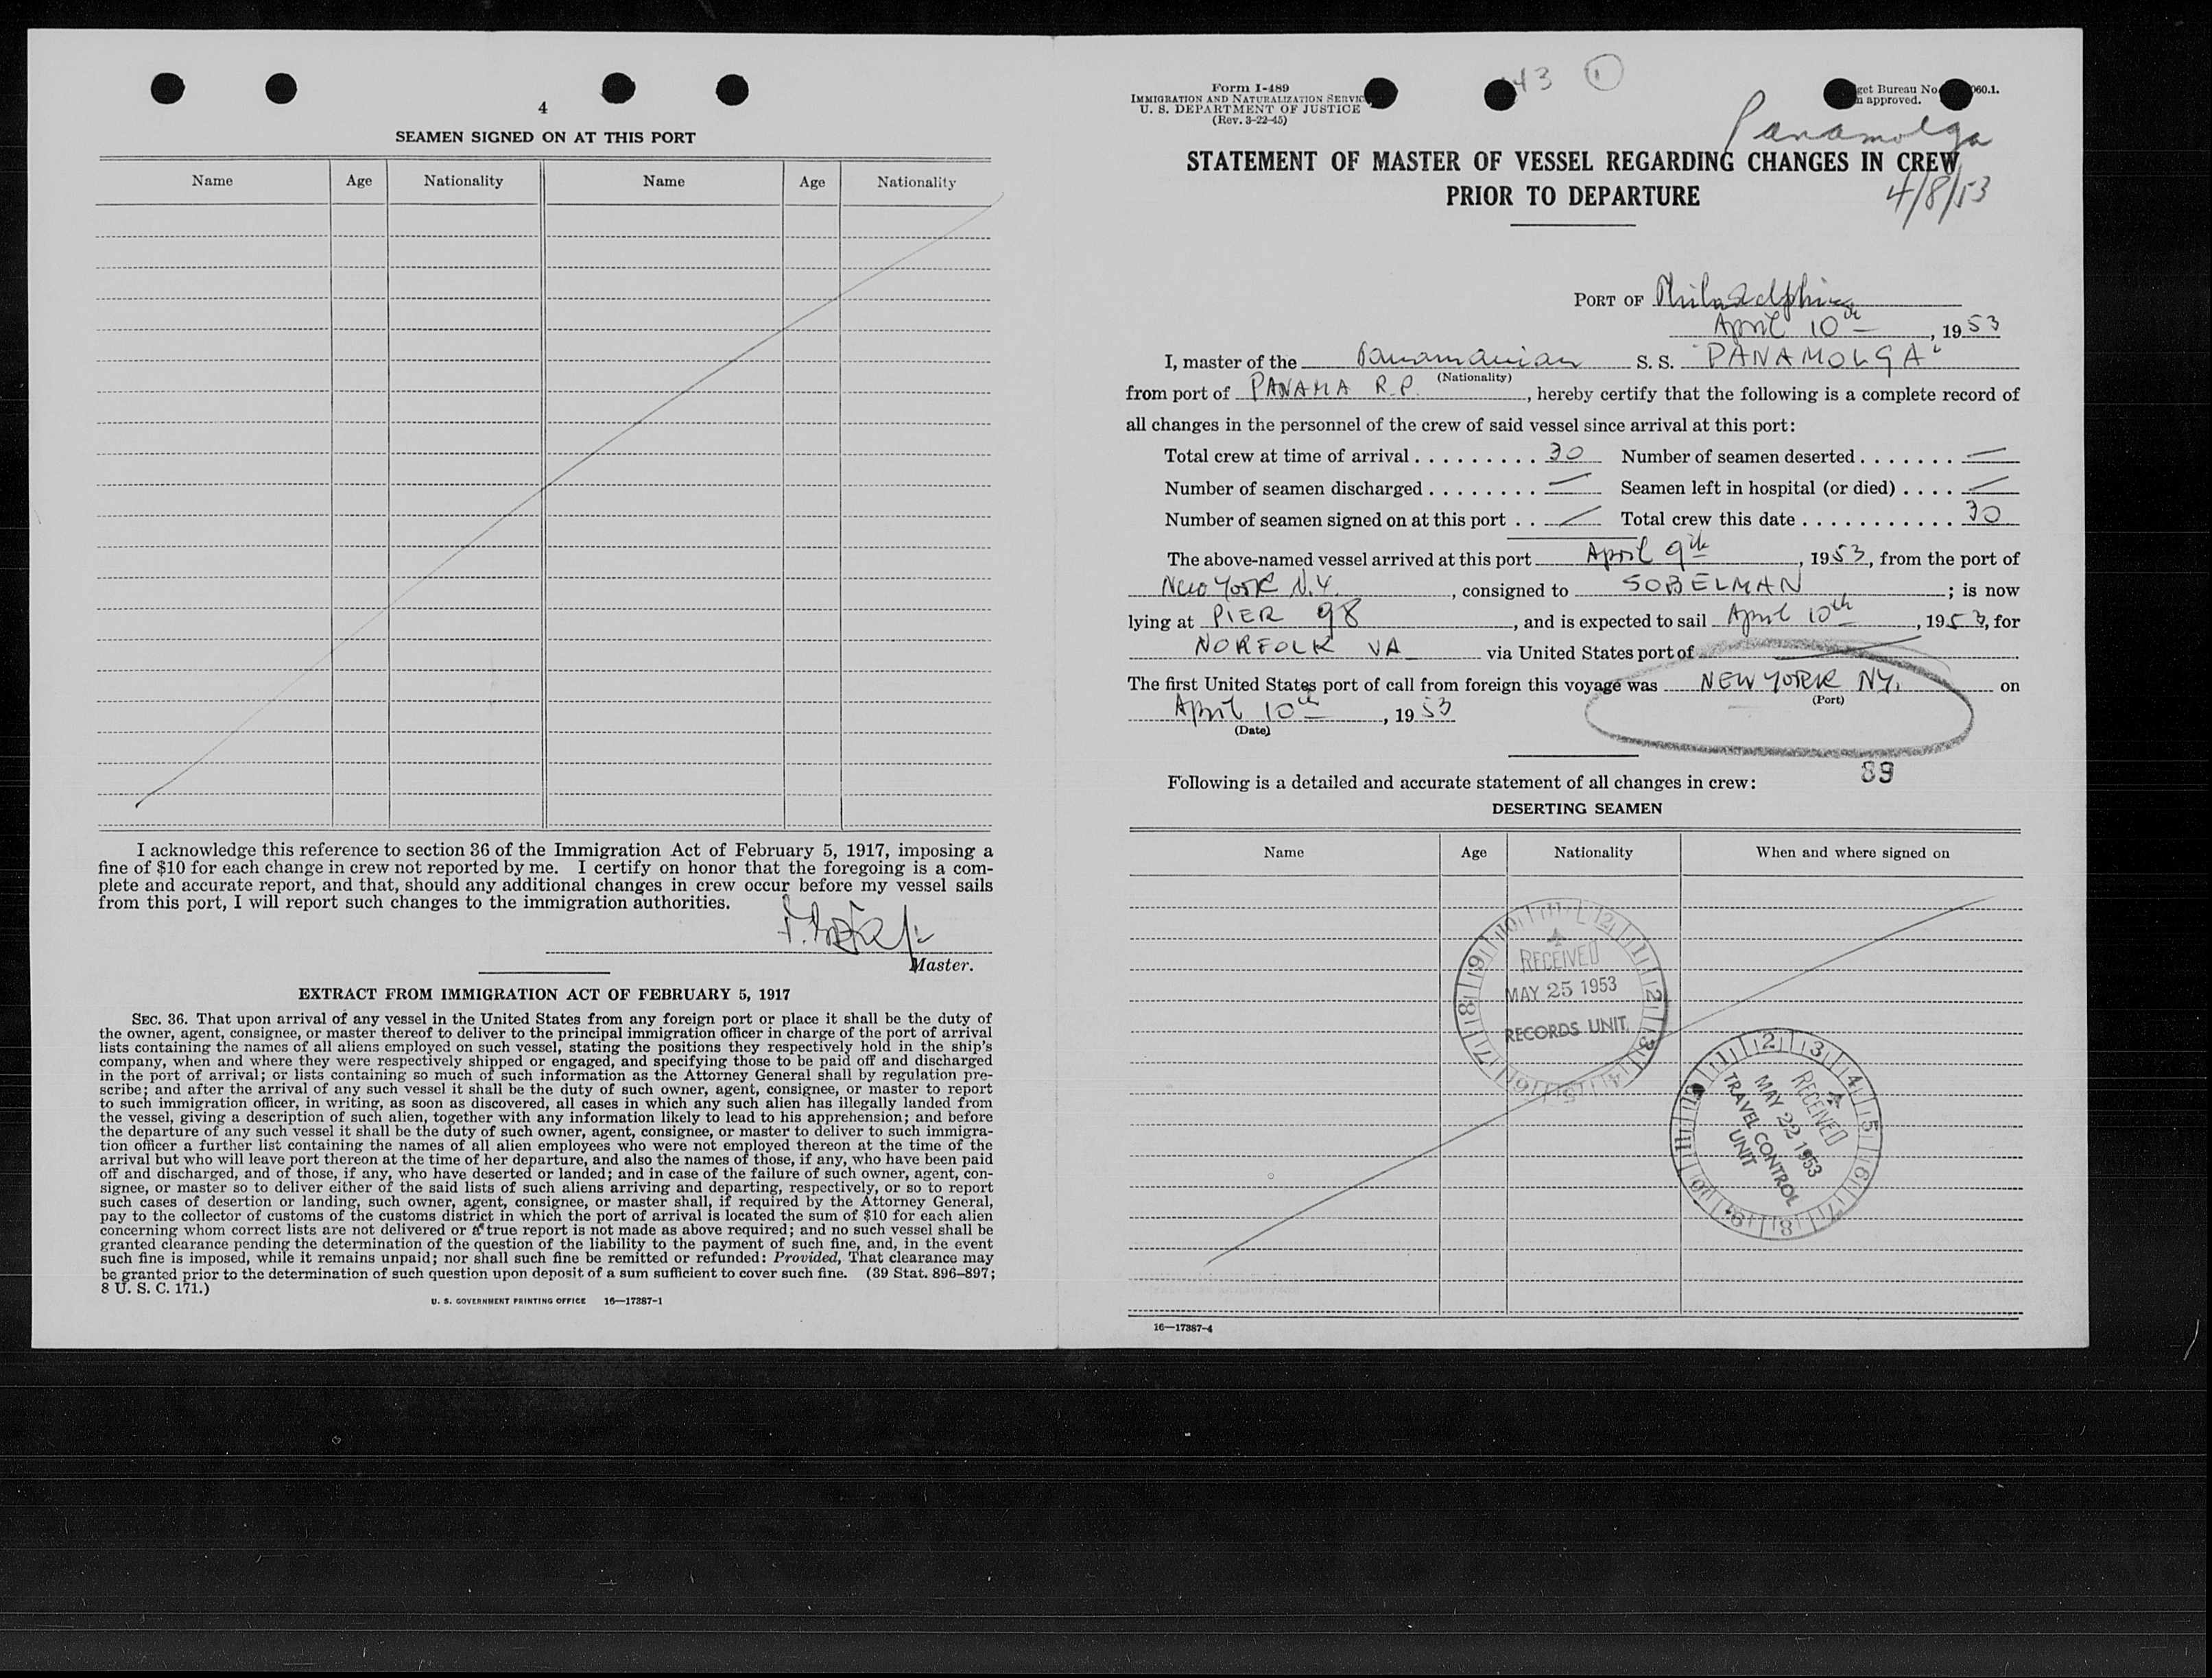 4
SEAMEN SIGNED ON AT THIS PORT
Name Age Nationality Name Age Nationality
I acknowledge this reference to section 36 of the Immigration Act of February 5, 1917, imposing a
fine of $10 for each change in crew not reported by me. I certify on honor that the foregoing is a com-
plete and accurate report, and that, should any additional changes in crew occur before my vessel sails
from this port, I will report such changes to the immigration authorities.
Master.
EXTRACT FROM IMMIGRATION ACT OF FEBRUARY 5, 1917
SEC. 36. That upon arrival of any vessel in the United States from any foreign port or place it shall be the duty of
the owner, agent, consignee, or master thereof to deliver to the principal immigration officer in charge of the port of arrival
lists containing the names of all aliens employed on such vessel, stating the positions they respectively hold in the ship's
company, when and where they were respectively shipped or engaged, and specifying those to be paid off and discharged
in the port of arrival; or lists containing so much of such information as the Attorney General shall by regulation pre-
scribe; and after the arrival of any such vessel it shall be the duty of such owner, agent, consignee, or master to report
to such immigration officer, in writing, as soon as discovered, all cases in which any such alien has illegally landed from
the vessel, giving a description of such alien, together with any information likely to lead to his apprehension; and before
the departure of any such vessel it shall be the duty of such owner, agent, consignee, or master to deliver to such immigra-
tion officer a further list containing the names of all alien employees who were not employed thereon at the time of the
arrival but who will leave port thereon at the time of her departure, and also the names of those, if any, who have been paid
off and discharged, and of those, if any, who have deserted or landed; and in case of the failure of such owner, agent, con-
signee, or master so to deliver either of the said lists of such aliens arriving and departing, respectively, or so to report
such cases of desertion or landing, such owner, agent, consignee, or master shall, if required by the Attorney General,
pay to the collector of customs of the customs district in which the port of arrival is located the sum of $10 for each alien
concerning whom correct lists are not delivered or a true report is not made as above required; and no such vessel shall be
granted clearance pending the determination of the question of the liability to the payment of such fine, and, in the event
such fine is imposed, while it remains unpaid; nor shall such fine be remitted or refunded: Provided, That clearance may
be granted prior to the determination of such question upon deposit of a sum sufficient to cover such fine. (39 Stat. 896–897;
8 U. S. C. 171.)
U. S. GOVERNMENT PRINTING OFFICE 16—17387-1
Form I-489
IMMIGRATION AND NATURALIZATION SERVIC
U. S. DEPARTMENT OF JUSTICE
(Rev. 3-22-45)
43 1
get Bureau No. 060.1.
approved.
Panamolga
STATEMENT OF MASTER OF VESSEL REGARDING CHANGES IN CREW
PRIOR TO DEPARTURE
4/8/53
PORT OF Philadelphia
April 10th, 1953
I, master of the Panamanian S. S. "PANAMOLGA"
(Nationality)
from port of PANAMA R.P., hereby certify that the following is a complete record of
all changes in the personnel of the crew of said vessel since arrival at this port:
Total crew at time of arrival . . . . . . . . . 30 Number of seamen deserted . . . . . . . —
Number of seamen discharged . . . . . . . . — Seamen left in hospital (or died) . . . . —
Number of seamen signed on at this port . . — Total crew this date . . . . . . . . . . . . 30
The above-named vessel arrived at this port April 9th, 1953, from the port of
New York N.Y., consigned to SOBELMAN; is now
lying at PIER 98, and is expected to sail April 10th, 1953, for
NORFOLK VA via United States port of —
The first United States port of call from foreign this voyage was NEW YORK NY. on
(Port)
April 10th, 1953
(Date)
89
Following is a detailed and accurate statement of all changes in crew:
DESERTING SEAMEN
Name Age Nationality When and where signed on
RECEIVED
MAY 25 1953
RECORDS UNIT
RECEIVED
MAY 22 1953
TRAVEL CONTROL
UNIT
16—17387-4